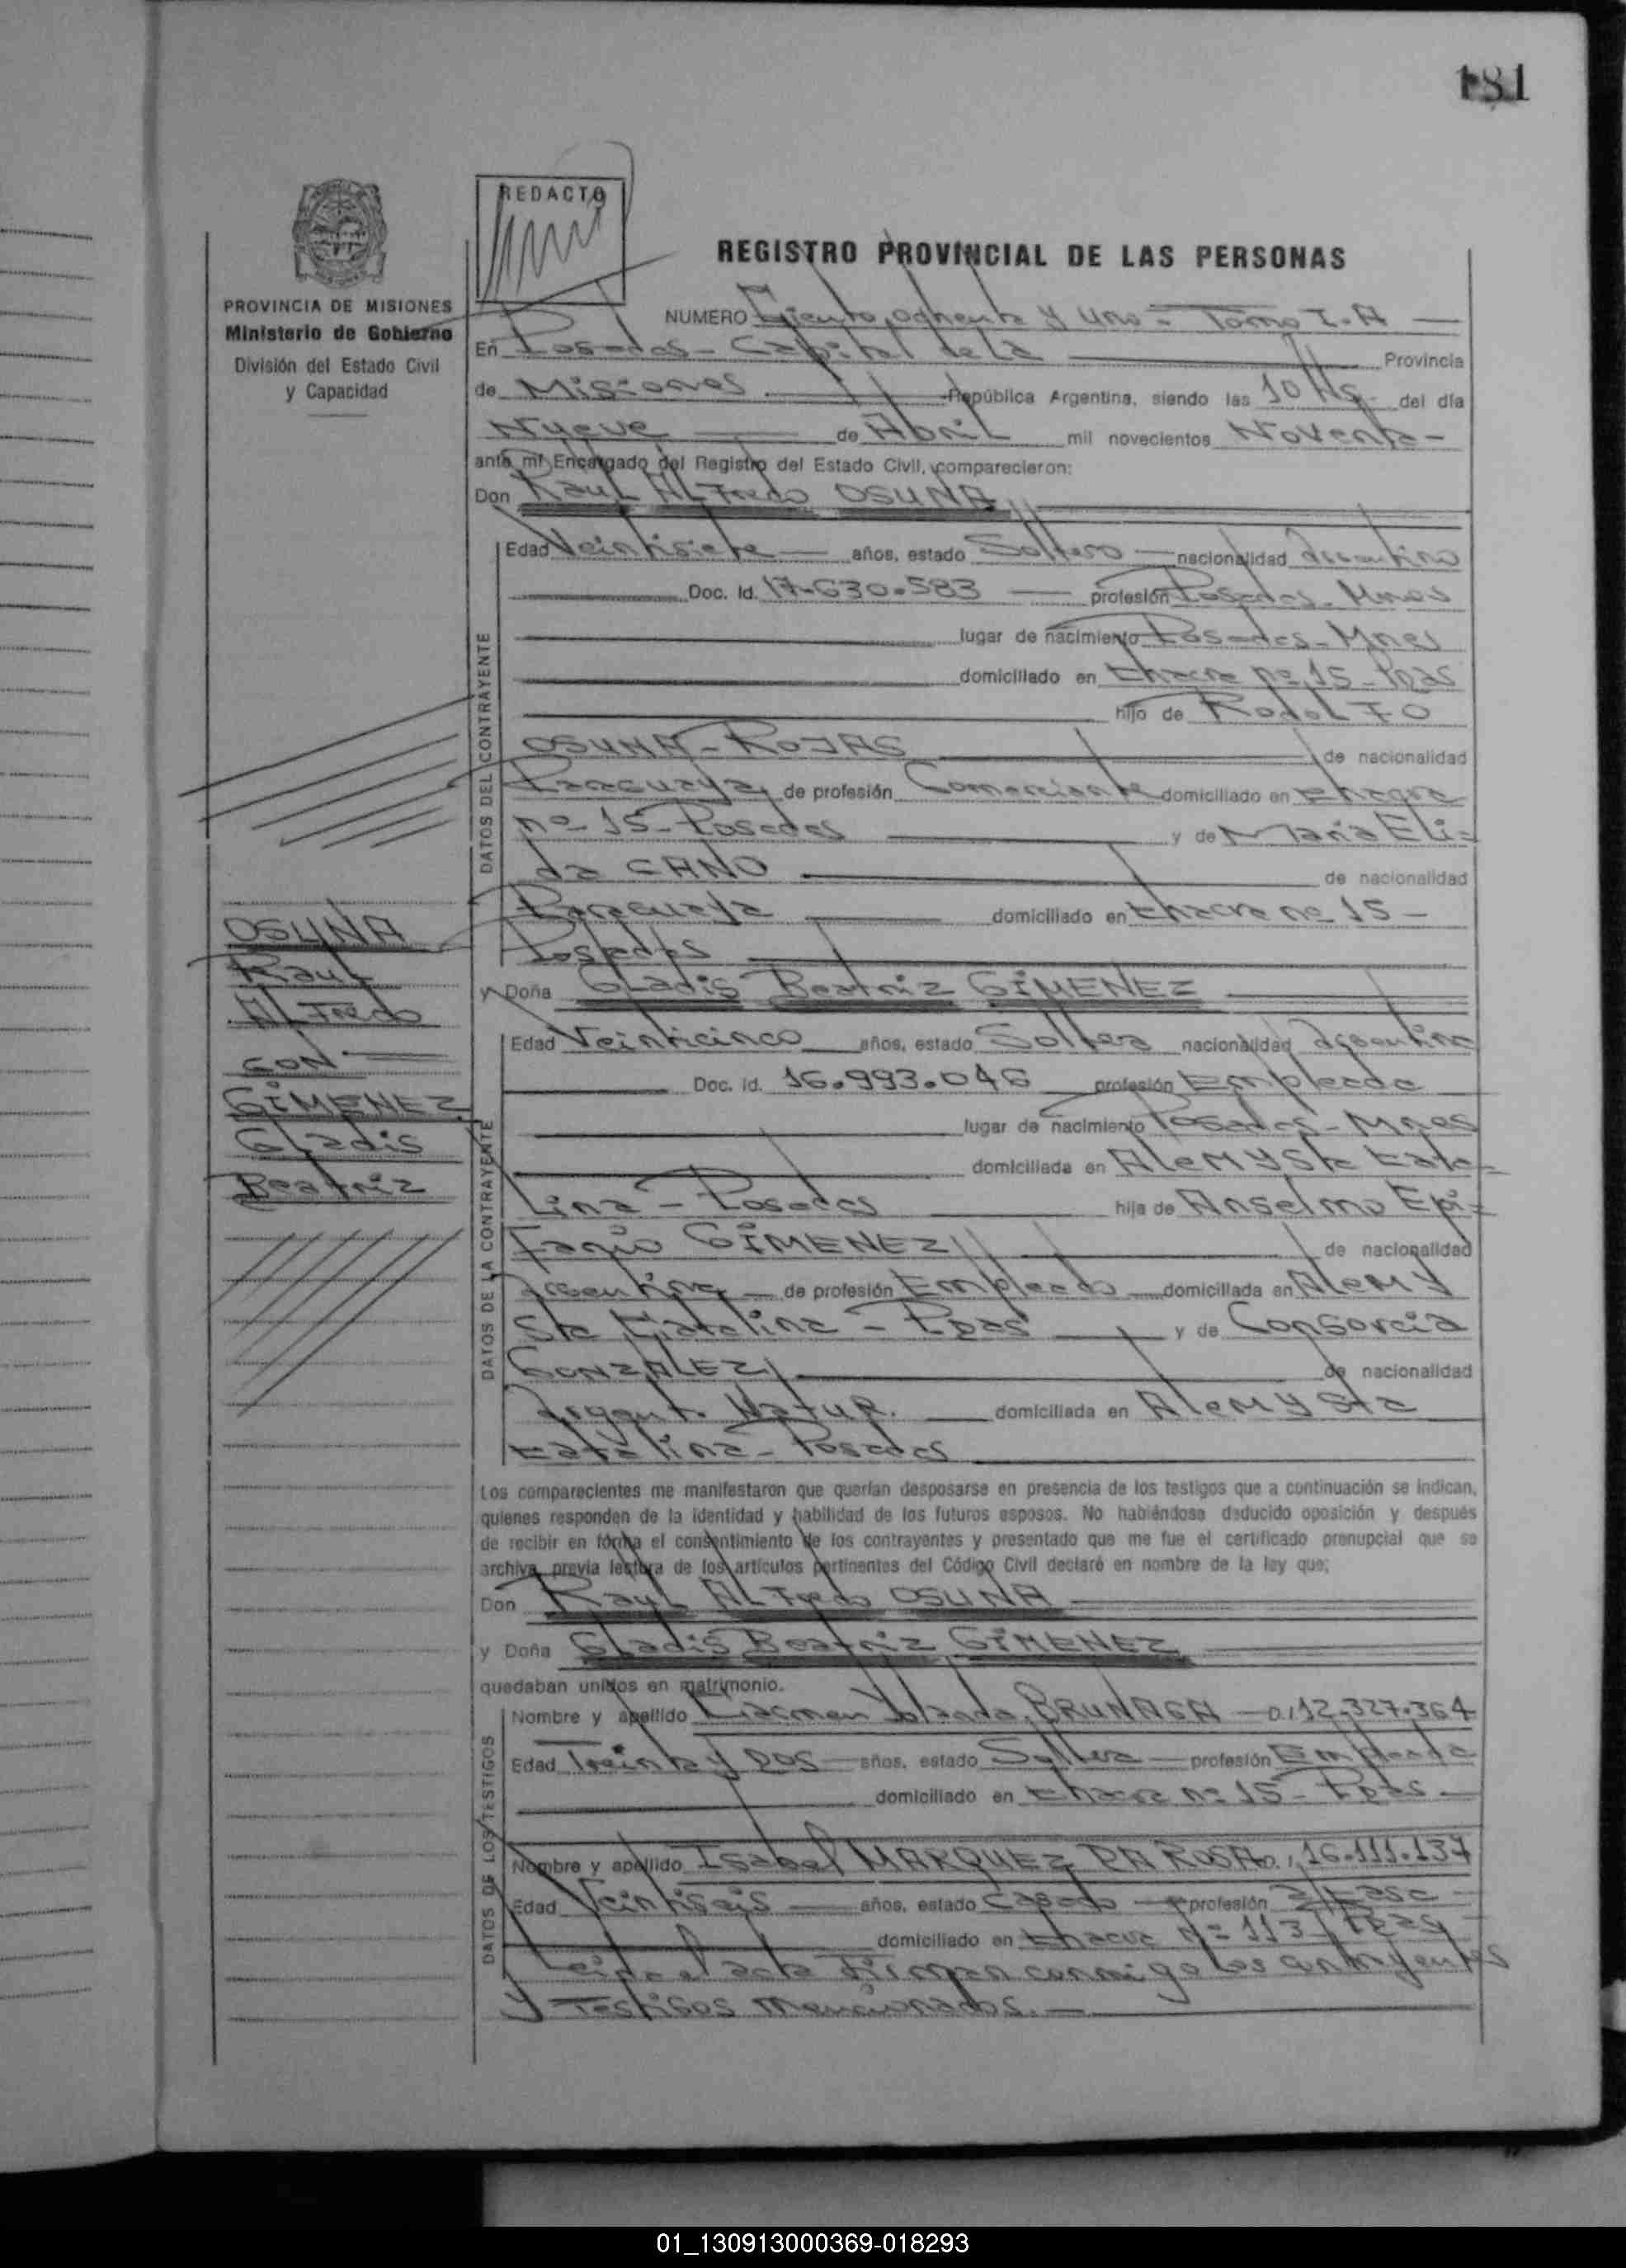 181
REDACTO
REGISTRO PROVINCIAL DE LAS PERSONAS
PROVINCIA DE MISIONES
Ministerio de Gobierno
División del Estado Civil
y Capacidad
NUMERO Ciento ochenta y uno - Tomo I-A
En Posadas - Capital de la Provincia
de Misiones República Argentina, siendo las 10 Hs. del día
Nueve de Abril mil novecientos Noventa -
ante mí Encargado del Registro del Estado Civil, comparecieron:
Don Raul ALFredo OSUNA
DATOS DEL CONTRAYENTE
Edad Veintisiete años, estado Soltero nacionalidad Argentino
Doc. Id. 17.630.583 profesión Posadas - Mnes
lugar de nacimiento Posadas - Mnes
domiciliado en Chacra nº 15 - Pdas
hijo de RodoLFO
OSUNA - ROJAS de nacionalidad
Paraguaya de profesión Comerciante domiciliado en Chacra
nº 15 - Posadas y de Maria Eli=
da CANO de nacionalidad
Paraguaya domiciliado en Chacra nº 15 -
Posadas
y Doña GLadis Beatriz GIMENEZ
OSUNA
Raul
ALFredo
CON
GIMENEZ
GLadis
Beatriz
DATOS DE LA CONTRAYENTE
Edad Veinticinco años, estado Soltera nacionalidad Argentina
Doc. Id. 16.993.046 profesión Empleada
lugar de nacimiento Posadas - Mnes
domiciliada en ALeM y Sta Cata=
Lina - Posadas hija de Anselmo Epi=
Fanio GIMENEZ de nacionalidad
Argentina de profesión Empleado domiciliada en ALeM y
Sta Catalina - Pdas y de Consorcia
GONZALEZ de nacionalidad
Argent. Natur. domiciliada en ALeM y Sta
Catalina - Posadas
Los comparecientes me manifestaron que querían desposarse en presencia de los testigos que a continuación se indican,
quienes responden de la identidad y habilidad de los futuros esposos. No habiéndose deducido oposición y después
de recibir en forma el consentimiento de los contrayentes y presentado que me fue el certificado prenupcial que se
archiva, previa lectura de los artículos pertinentes del Código Civil declaré en nombre de la ley que;
Don Raul ALFredo OSUNA
y Doña GLadis Beatriz GIMENEZ
quedaban unidos en matrimonio.
DATOS DE LOS TESTIGOS
Nombre y apellido Carmen Yolanda BRUNAGA - D.I 12.327.364
Edad Treinta y Dos años, estado Soltera profesión Empleada
domiciliado en Chacra nº 15 - Pdas -
Nombre y apellido Isabel MARQUEZ DA ROSA D.I 16.111.137
Edad Veintiseis años, estado Casada profesión
domiciliado en Chacra Nº 113 Pdas
Leida el acta Firman conmigo Los contrayentes
y Testigos mencionados. -
01_130913000369-018293